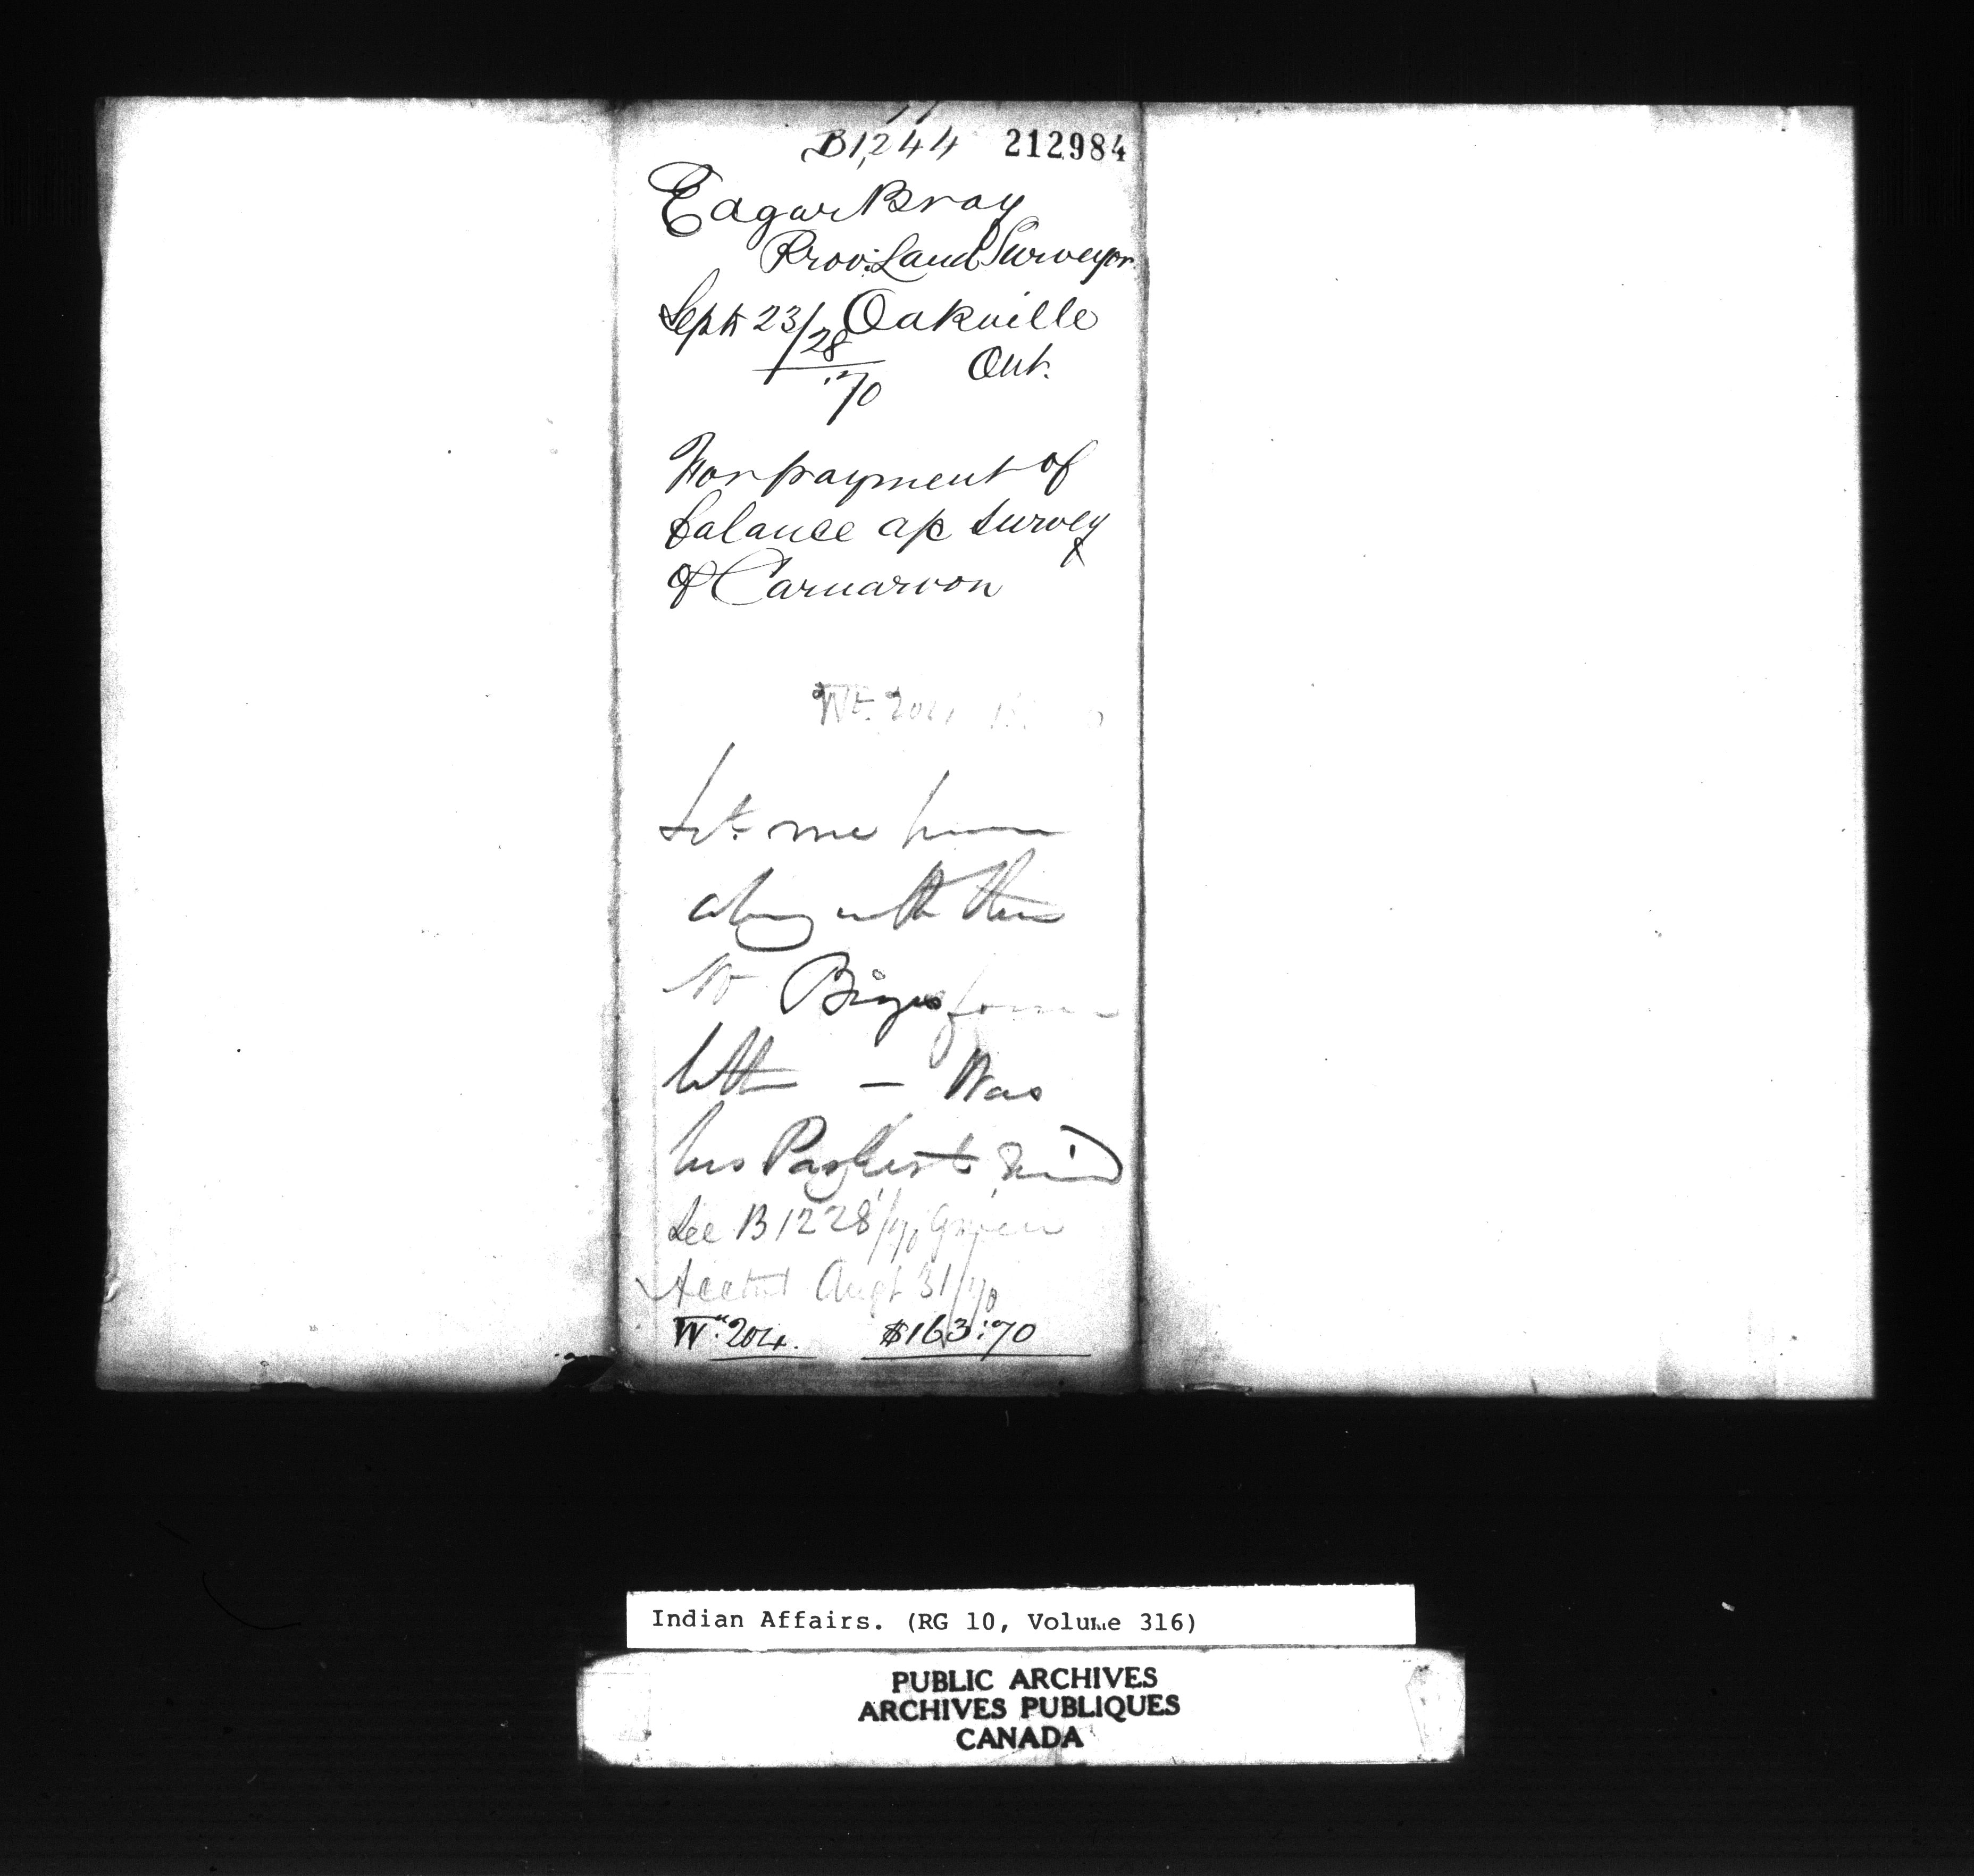 B1,244 212984
Edgar Bray
Prov: Land Surveyor
Septr 23/28 Oakville
'70 Ont.
For payment of
balance a/c survey
of Carnarvon
Wt. 204
Let me have
along with this
Mr former
letter — Was
his
See B1228/70 Given
Acctnt Augt 31/70
Wt. 204. $163:70
Indian Affairs. (RG 10, Volume 316)
PUBLIC ARCHIVES
ARCHIVES PUBLIQUES
CANADA